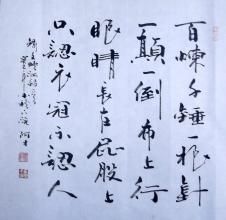 百炼千锤一根针
一颠一倒布上行
眼睛长在屁股上
只認衣冠不認人